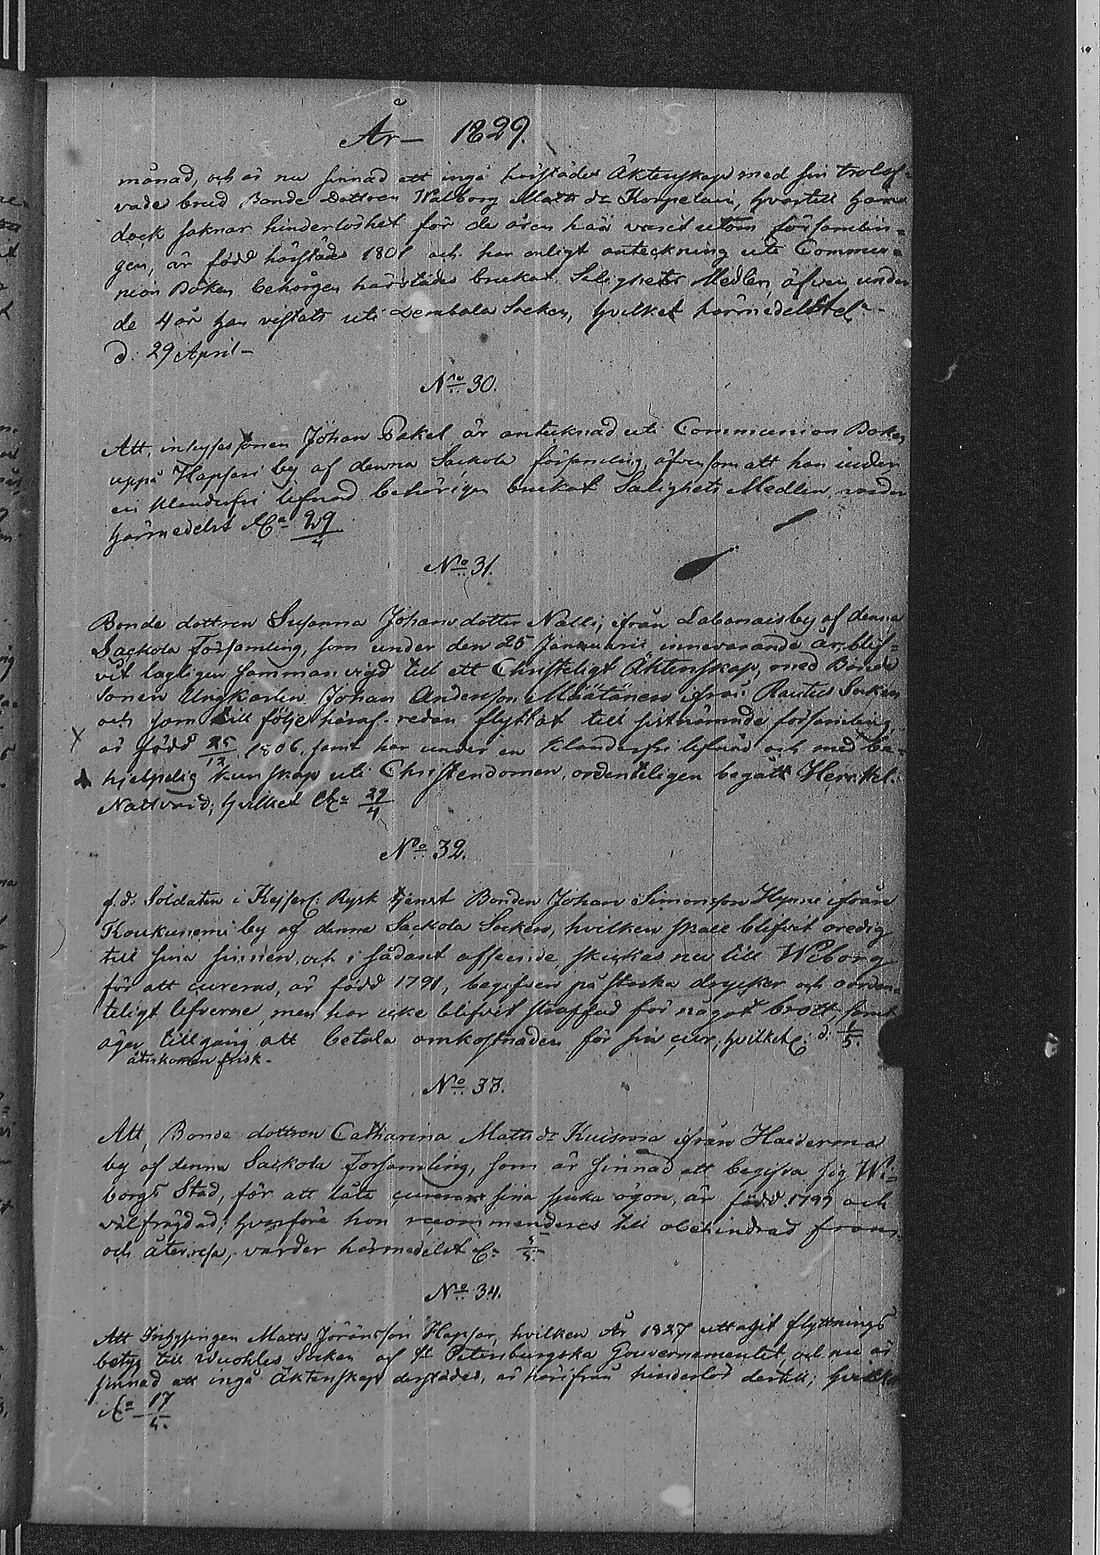 År 1829.
månad, och är nu sinnad att ingå härstädes Äktenskap med sin trolof-
vade brud Bonde dottren Walborg Matts dr Karpelain, hvartill han
dock saknar hinderlöshet för de åren han varit utom församlin-
gen, är född härstädes 1801 och har enligt anteckning uti Commu-
nion Boken behörigen härstädes brukat Salighets Medlen, äfven under
de 4 år han vistats uti Lembala Socken, hvilket härmedelst
d: 29 April
No 30.
Att inhysessonen Johan Pakel är antecknad uti Communion Boken
uppå Hapsari by af denna Sackola församling, äfvensom att han under
en klanderfri lefnad behörigen brukat Salighets Medlen, varder
härmedelst 29/4
No 31.
Bonde dottren Susanna Johansdotter Nalli, ifrån Labanais by af denna
Sackola Församling, som under den 25 Januarii innevarande år blif-
vit lagligen sammanvigd till ett Christeligt Äktenskap, med Bonde
sonen Ungkarlen Johan Andersson Määtänen ifrån Rautus Socken
och som till följe häraf redan flyttat till sistnämnde församling
är född 25/12 1806, samt har under en klanderfri lefnad och med be-
hjelpelig kunskap uti Christendomen ordenteligen begått Herrans
Nattvard; hvilket 29/4
No 32.
f.d. Soldaten i Kejserl: Rysk tjenst Bonden Johan Simonsson Hynne ifrån
Koukunemi by af denna Sackola Socken, hvilken skall blifvit oredig
till sina sinnen, och i sådant afseende, skickas nu till Wiborg
för att cureras, är född 1791, begifven på starka drycker och oorden-
teligt lefverne, men har icke blifvit straffad för något brott samt
äger tillgång att betala omkostnaden för sin cur, hvilket d. 1/5.
återkommen frisk.
No 33.
Att Bonde dottren Catharina Matts dr Kuisma ifrån Haiderma
by af denna Sackola Församling, som är sinnad att begifva sig Wi-
borgs Stad, för att låta curera sina sjuka ögon, är född 1799 och
välfräjdad; hvarföre hon recommenderes till obehindrad fram
och återresa, varder härmedelst 5/5.
No 34.
Att Inhysingen Matts Jöransson Hapsar, hvilken År 1827 uttagit flyttnings
betyg till Wuohles Socken af St Petersburgska Gouvernementet och nu är
sinnad att ingå Äktenskap derstädes, är härifrån hinderlös dertill; hvilket
17/5.